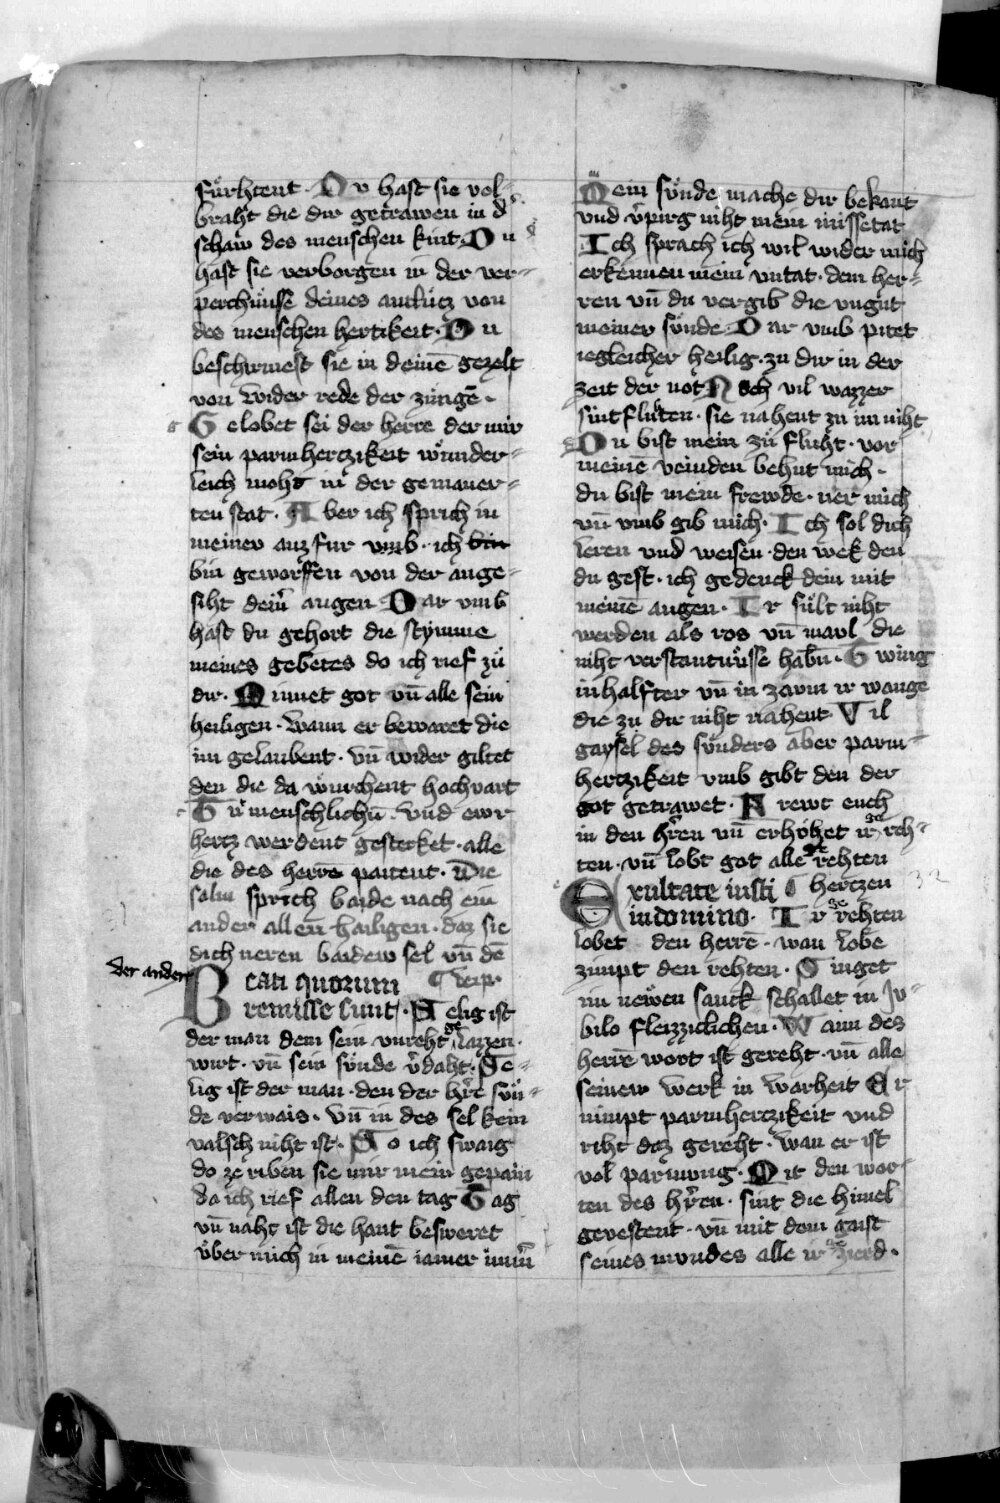 fürhtent · Du hast sie vol-
braht die dir getrawen in d'
schaw des menschen kint · Du
hast sie verborgen in der ver-
perchnüsse deines antlütz von
des menschen hertikeit · Du
beschirmest sie in deinē gezelt
von wider rede der zungē ·
Gelobet sei der herre der mir
sein parmhertzikeit wunder-
leich moht in der gemauer-
ten stat · Aber ich sprich in
meiner auz fur vmb · ich bin
bin geworffen von der ange-
siht dein' augen Dar vmb
hast du gehort die stymme
meines gebetes do ich rief zů
dir · Minnet got vn̄ alle sein
heiligen · wann er bewaret die
im gelaubent · vn̄ wider giltet
den die da würchent hochvart
Tůt menschlichn̄ · vnd ewr
hertz werdent gesterket · alle
die des herrē paitent · Die
salm sprich baide nach ein
ander allen hailigen · daz sie
dich neren baidew sel vn̄ dē
der ander
Beati quorum ¶ leip ·
remisse sunt · Selig ist
der man dem sein vnreht gelazzen
wirt · vn̄ sein sünde v'daht · Se-
lig ist der man · den der h're sün-
de verwais · vn̄ in des sel kein
valsch niht ist · So ich swaig
do ze riben sie mir mein gepain
da ich rief allen den tag Tag
vn̄ naht ist die hant besweret
über mich in meinē iamer
Mein sünde mache dir bekant
vnd v'pirg niht mein missetat
Ich sprach ich wil wider mich
erkennen mein vntat · dem her-
ren vn̄ du vergib die vngut
meiner sünde · Dar vmb pitet
iegleicher heilig · zu dir in der
zeit der not Noch vil wazzer
sintfluten · sie nahent zu im niht
Du bist mein zů fluht · vor
meinē veinden behut mich ·
du bist mein frewde · ner mich
vn̄ vmb gib mich · Ich sol dich
leren vnd weisen · den wek den
du gest · ich gedenck dein mit
meinē augen · Ir sült niht
werden als ros vn̄ maul die
niht verstantnüsse habn̄ · Twing
in halfter vn̄ in zaum ir wange
die zu dir niht nahent Vil
gaysel des sünders aber parm-
hertzikeit vmb gibt den der
got getrawet · Frewt euch
in den h'ren vn̄ erhöhet ir gereh-
ten · vn̄ lobt got alle gerehten
Exultate iusti ¶ hertzen
in domino · Ir gerehten
lobet den herrē · wan lobē
zimpt den rehten · Singet
im newen sanck schallet in Ju-
bilo fleizziclichen · Wann des
herrē wort ist gereht · vn̄ alle
seinew werk in warheit Er
nimpt parmhertzikeit vnd
riht daz gereht · wan er ist
vol parmung · Mit den wor-
ten des h'ren · sint die himel
gevestent · vn̄ mit dem gaist
seines mundes alle ir gezierd ·
32